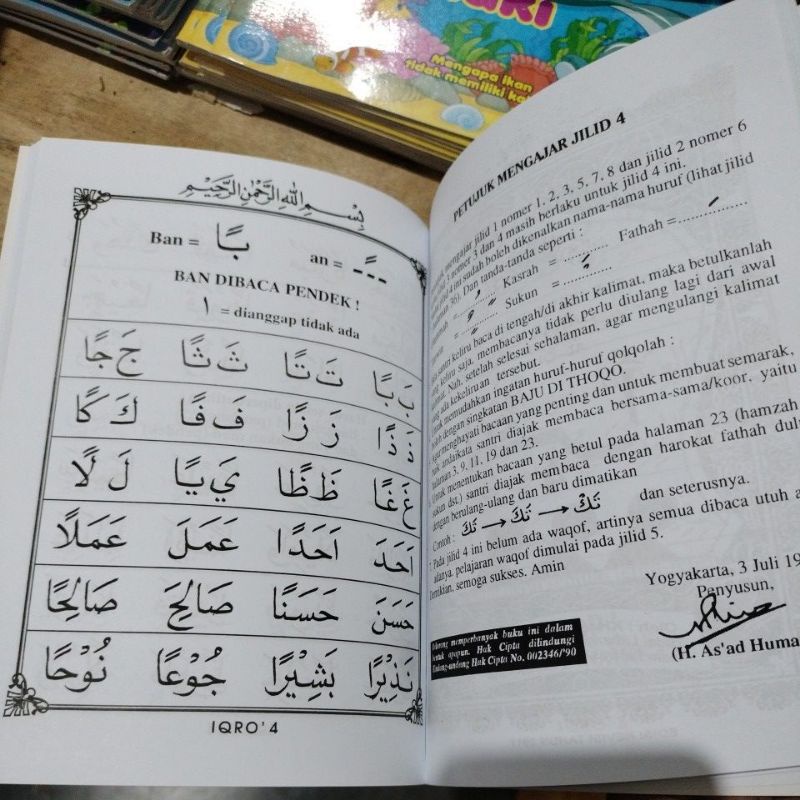 Mengapa ikan
tidak memiliki
PETUJUK MENGAJAR JILID 4
بِسْمِ اللهِ الرَّحْمٰنِ الرَّحِيْمِ
Ban = بًا an = ً
BAN DIBACA PENDEK !
ا = dianggap tidak ada
بَ بًا تَ تًا ثَ ثًا جَ جًا
ذَ ذًا زَ زًا فَ فًا كَ كًا
غَ غًا ظَ ظًا يَ يًا لَ لًا
اَحَدَ اَحَدًا عَمَلَ عَمَلًا
حَسَنَ حَسَنًا صَالِحَ صَالِحًا
نَذِيْرًا بَشِيْرًا جُوْعًا نُوْحًا
IQRO' 4
mengajar jilid 1 nomer 1, 2, 3, 5, 7, 8 dan jilid 2 nomer 6
nomer 3 dan 4 masih berlaku untuk jilid 4 ini.
4 ini sudah boleh dikenalkan nama-nama huruf (lihat jilid
36). Dan tanda-tanda seperti :
Kasrah = Fathah =
Sukun =
santri keliru baca di tengah/di akhir kalimat, maka betulkanlah
yang keliru saja, membacanya tidak perlu diulang lagi dari awal
kalimat. Nah, setelah selesai sehalaman, agar mengulangi kalimat
yang ada kekeliruan tersebut.
Untuk memudahkan ingatan huruf-huruf qolqolah :
boleh dengan singkatan BAJU DI THOQO.
Agar menghayati bacaan yang penting dan untuk membuat semarak,
baik andaikata santri diajak membaca bersama-sama/koor, yaitu
halaman 3, 9, 11, 19 dan 23.
Untuk menentukan bacaan yang betul pada halaman 23 (hamzah
sukun dst.) santri diajak membaca dengan harokat fathah dulu
dengan berulang-ulang dan baru dimatikan
Contoh : تَكَ → تَكَ → تَكْ dan seterusnya.
Pada jilid 4 ini belum ada waqof, artinya semua dibaca utuh
adanya. pelajaran waqof dimulai pada jilid 5.
Demikian, semoga sukses. Amin
Yogyakarta, 3 Juli 19
Penyusun,
(H. As'ad Huma
Dilarang memperbanyak buku ini dalam
bentuk apapun. Hak Cipta dilindungi
Undang-undang Hak Cipta No. 002346/'90